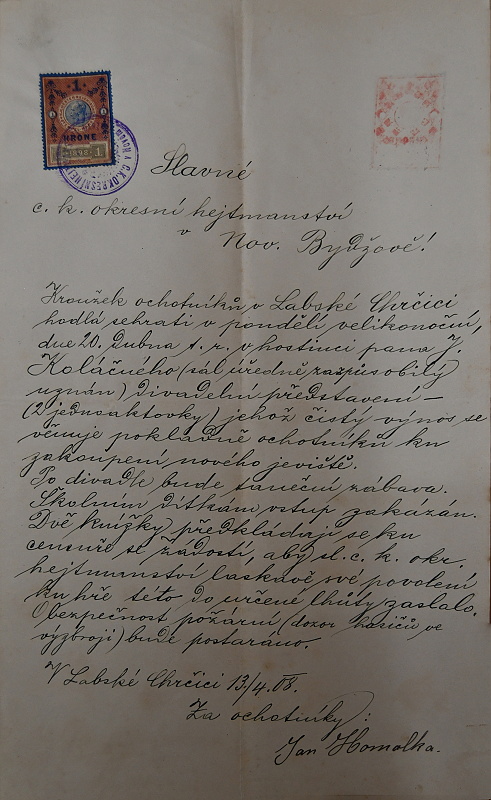 1
KRONE
1898
Slavné
c. k. okresní hejtmanství
v
Nov. Bydžově!
Kroužek ochotníků v Labské Chrčici
hodlá sehrati v pondělí velikonoční,
dne 20. dubna t. r. v hostinci pana J.
Koláčného (sál úředně za způsobilý
uznán) divadelní představení –
(2 jednoaktovky) jehož čistý výnos se
věnuje pokladně ochotníků ku
zakoupení nového jeviště.
Po divadle bude taneční zábava.
Školním dítkám vstup zakázán.
Dvě knížky předkládají se ku
censuře se žádostí, aby sl. c. k. okr.
hejtmanství laskavě své povolení
ku hře této do určené lhůty zaslalo.
O bezpečnost požární (dozor hasičů ve
výzbroji) bude postaráno.
V Labské Chrčici 13/4. 08.
Za ochotníky:
Jan Homolka.